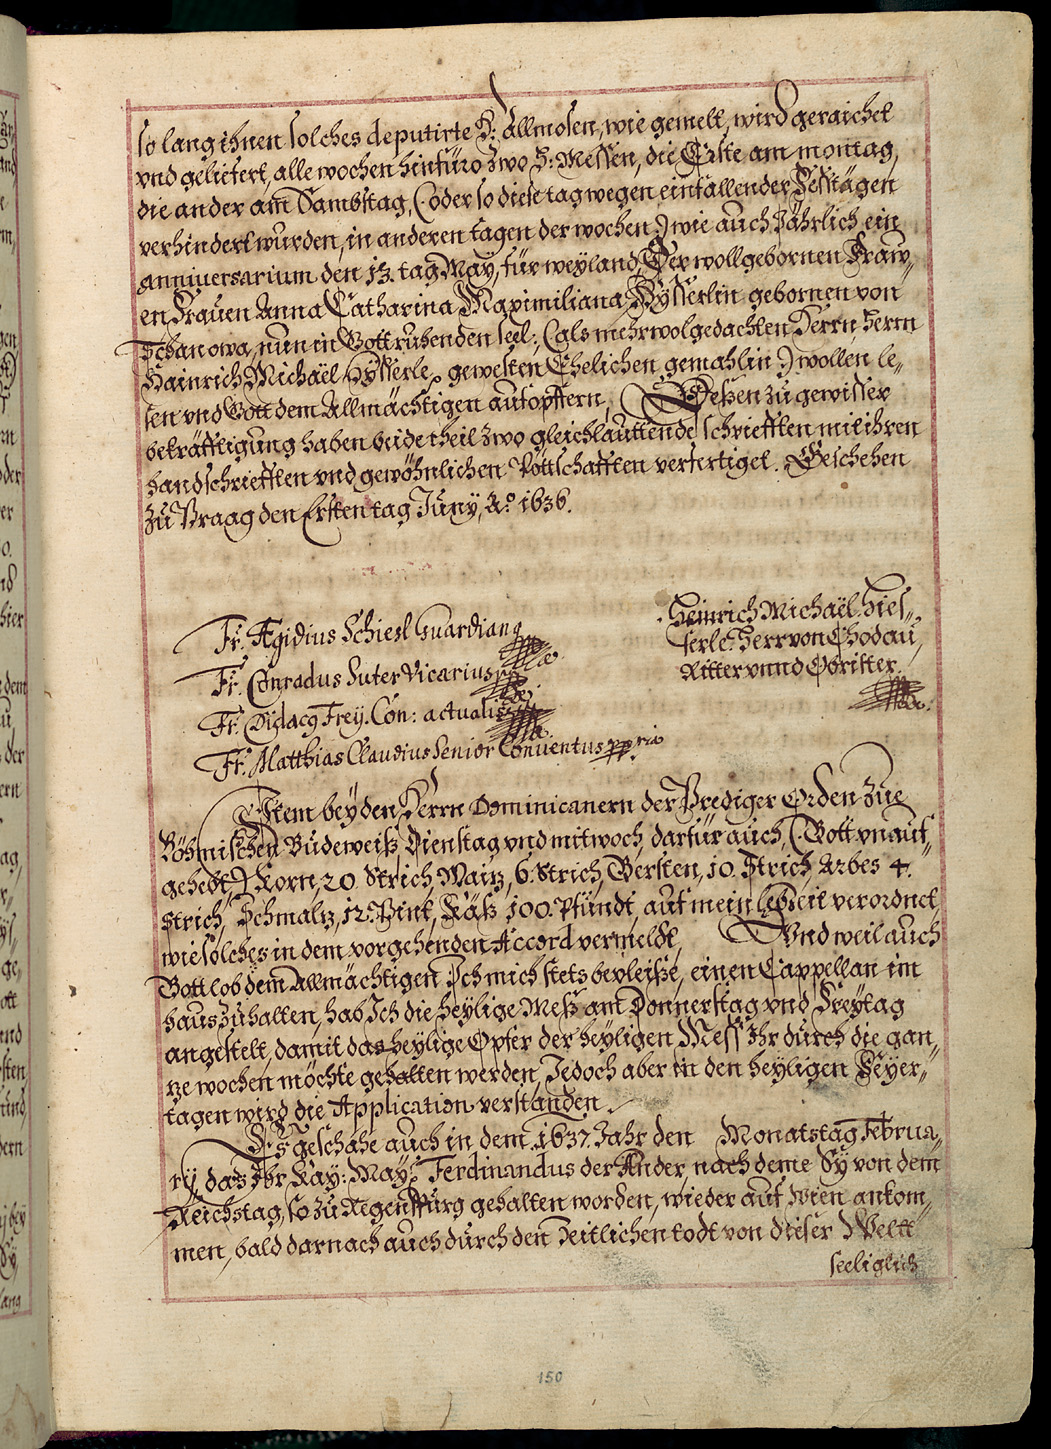 so lang ihnen solches deputirte H: Allmosen, wie gemelt, wird geraichet
vnd geliefert, alle wochen hinfüro zwo H: Messen, die Erste am montag,
die ander am Sambstag, (: oder so diese tag wegen einfallender Festtägen
verhindert wurden, in anderen tagen der wochen :) wie auch Jährlich ein
anniuersarium den 13. tag May, für weyland, Der wollgebornen Fraw„
en Frauen Anna Catharina Maximiliana Hysserlin gebornen von
Tchanowa, nun in Gott ruhenden seel:, (als mehrwolgedachten Herrn, Herrn
Hainrich Michaël Hysserle, gewesten Ehelichen gemahlin :) wollen le„
sen vnd Gott dem Allmächtigen aufopffern, Dessen zu gewisser
bekräfftigung haben beide theil zwo gleichlauttende schriefften mit ihren
handschriefften vnd gewöhnlichen Pöttschafften verfertiget. Geschehen
zu Praag den Ersten tag Juny, Aº 1636.
Fr. Ægidius Schiesl Guardiang
Fr. Conradus Suter Vicarius
Fr. Didacg Frey. Con: actualis
Fr. Matthias Claudius Senior Conuentus ppria
Heinrich Michaël Hies„
serle. Herr von Chodau,
Ritter vnnd Obrister.
Item bey den Herrn Dominicanern der Prediger Orden zue
Böhmischen Budeweiß Dienstag vnd mitwoch, darfür auch, (: Gott vnauf„
gehebt :) Korn, 20 Strich, Waitz, 6. Strich, Gersten, 10. Strich, Arbes 4.
Strich, Schmaltz, 12. Pint, Käß 100. Pfundt, auf mein lebzeit verordnet,
wie solches in dem vorgehenden Accord vermeldt, Vnd weil auch
Gott lob dem Allmächtigen Ich mich stets befleiße, einen Cappellan im
haus zu halten, hab Ich die heylige Meß am Donnerstag vnd Freytag
angestelt, damit das heylige Opfer der heyligen Mess Ihr durch die gan„
tze wochen möchte gehalten werden, Jedoch aber in den heyligen Feyer„
tagen wird die Application verstanden.
Es geschahe auch in dem 1637. Jahr den Monatstag Februa„
rij, das Ihr Kay: May: Ferdinandus der Ander, nach deme Sy von dem
Reichstag, so zu Regenspurg gehalten worden, wieder auf Wien ankom„
men, bald darnach auch durch den Zeitlichen todt von dieser Weltt
seeliglich
150